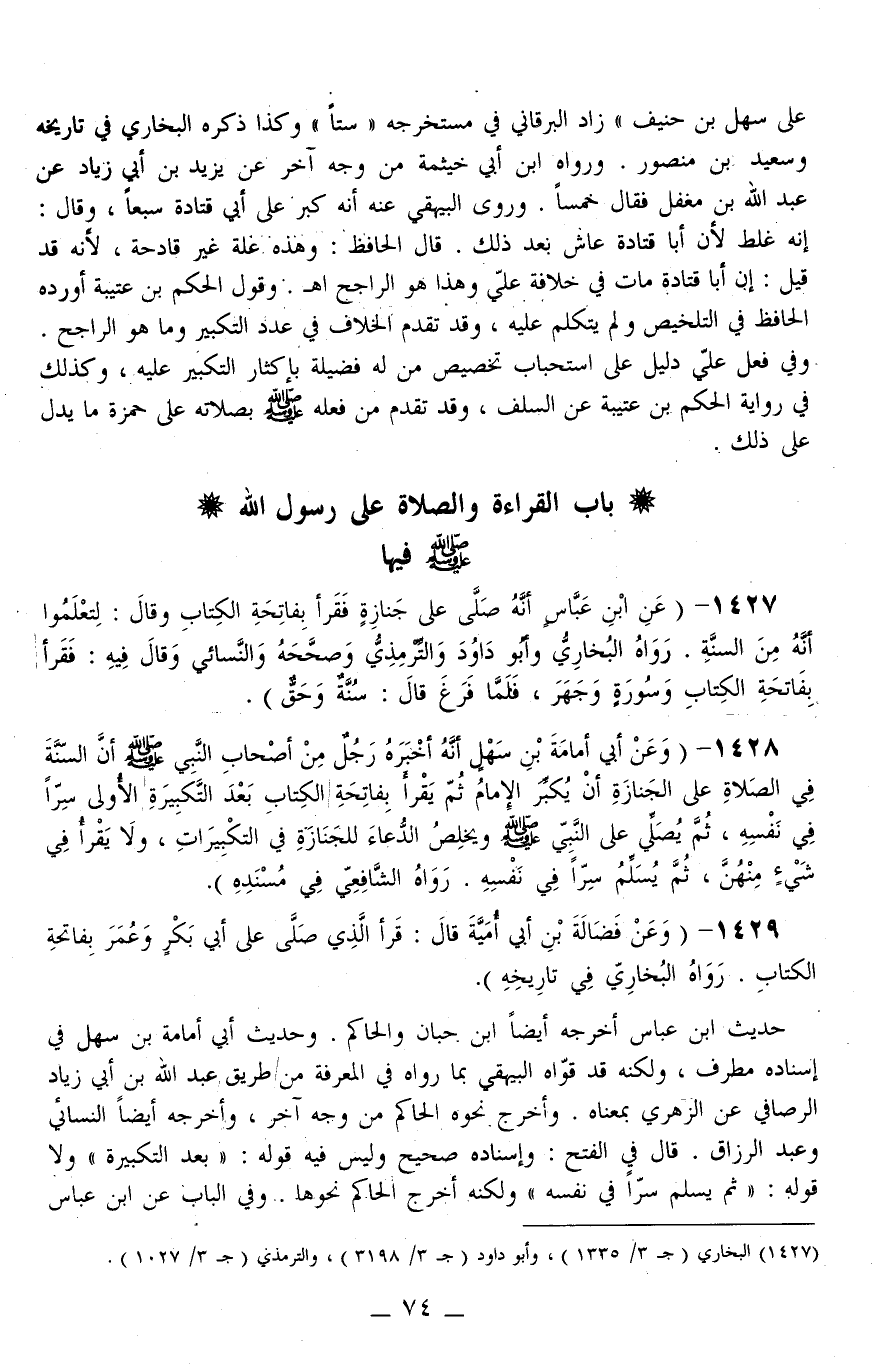 على سهل بن حنيف » زاد البرقاني في مستخرجه « ستاً » وكذا ذكره البخاري في تاريخه
وسعيد بن منصور . ورواه ابن أبي خيثمة من وجه آخر عن يزيد بن أبي زياد عن
عبد الله بن مغفل فقال خمساً . وروى البيهقي عنه أنه كبر على أبي قتادة سبعاً ، وقال :
إنه غلط لأن أبا قتادة عاش بعد ذلك . قال الحافظ : وهذه علة غير قادحة ، لأنه قد
قيل : إن أبا قتادة مات في خلافة عليّ وهذا هو الراجح اهـ . وقول الحكم بن عتيبة أورده
الحافظ في التلخيص ولم يتكلم عليه ، وقد تقدم الخلاف في عدد التكبير وما هو الراجح .
وفي فعل عليّ دليل على استحباب تخصيص من له فضيلة بإكثار التكبير عليه ، وكذلك
في رواية الحكم بن عتيبة عن السلف ، وقد تقدم من فعله ﷺ بصلاته على حمزة ما يدل
على ذلك .
باب القراءة والصلاة على رسول الله
ﷺ فيها
١٤٢٧- ( عَنِ ابْنِ عَبَّاسٍ أنَّهُ صَلَّى على جَنازةٍ فَقَرأ بِفاتحَةِ الكِتابِ وقالَ : لِتعْلَمُوا
أنَّهُ مِنَ السنَّةِ . رَوَاهُ البُخاريُّ وأبُو دَاوُدَ وَالتِّرْمِذيُّ وَصحَّحَهُ وَالنَّسائي وَقالَ فِيهِ : فَقَرأ
بِفَاتحَةِ الكِتابِ وَسُورَةٍ وَجَهَرَ ، فَلَمَّا فَرَغَ قالَ : سُنَّةٌ وَحَقٌّ ) .
١٤٢٨- ( وَعَنْ أبي أمامَةَ بْنِ سَهْلٍ أنَّهُ أخْبَرَهُ رَجُلٌ مِنْ أصْحابِ النَّبي ﷺ أنَّ السنَّةَ
فِي الصَلاةِ على الجَنازَةِ أنْ يُكبِّرَ الإمامُ ثُمّ يَقْرأ بِفاتحَةِ الكِتابِ بَعْدَ التَّكبِيرَةِ الأُولى سِرّاً
فِي نَفْسِهِ ، ثُمَّ يُصَلِّي على النَّبيّ ﷺ ويخلِصُ الدُّعاءَ للجَنازَةِ في التكْبِيرَاتِ ، ولَا يَقْرأُ فِي
شَيْءٍ مِنْهُنَّ ، ثُمَّ يُسَلِّمُ سِرّاً فِي نَفْسِهِ . رَوَاهُ الشَّافِعيّ فِي مُسْنَدِهِ ).
١٤٢٩- ( وَعَنْ فَضَالَةَ بْنِ أبي أُمَيَّةَ قالَ : قَرأ الَّذِي صَلَّى على أبي بَكْرٍ وَعُمَرَ بِفاتحةِ
الكتابِ . رَوَاهُ البُخاريّ فِي تاريخِهِ ).
حديث ابن عباس أخرجه أيضاً ابن حبان والحاكم . وحديث أبي أمامة بن سهل في
إسناده مطرف ، ولكنه قد قوّاه البيهقي بما رواه في المعرفة من طريق عبد الله بن أبي زياد
الرصافي عن الزهري بمعناه . وأخرج نحوه الحاكم من وجه آخر ، وأخرجه أيضاً النسائي
وعبد الرزاق . قال في الفتح : وإسناده صحيح وليس فيه قوله : « بعد التكبيرة » ولا
قوله : « ثم يسلم سرّاً في نفسه » ولكنه أخرج الحاكم نحوها . وفي الباب عن ابن عباس
(١٤٢٧) البخاري ( جـ ٣/ ١٣٣٥ ) ، وأبو داود ( جـ ٣/ ٣١٩٨ ) ، والترمذي ( جـ ٣/ ١٠٢٧ ) .
ــ ٧٤ ــ